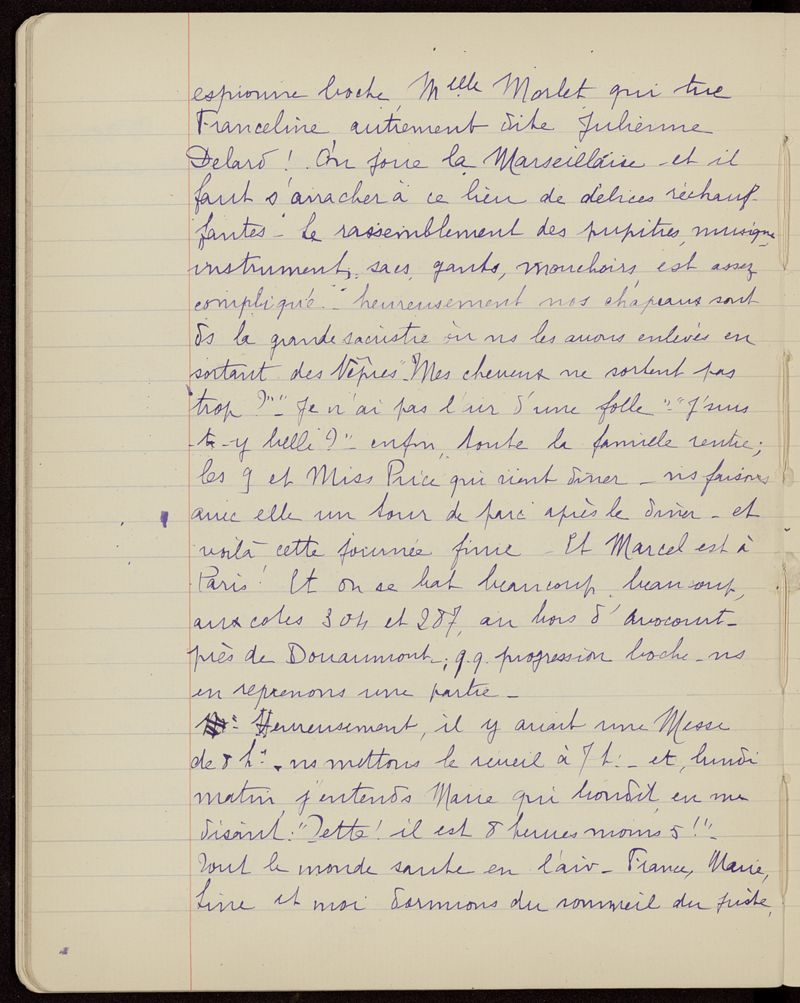 espionne boche, Melle Morlet qui tue
Franceline autrement dite Julienne
Delard ! On joue la Marseillaise - et il
faut s'arracher à ce lieu de délices réchauf-
fantes - Le rassemblement des pupitres, musique,
instruments, sacs, gants, mouchoirs, est assez
compliqué - heureusement nos chapeaux sont
ds la grande sacristie où ns les avons enlevés en
sortant des Vêpres - "Mes cheveux ne sortent pas
trop ?" - "Je n'ai pas l'air d'une folle" - "J'suis
-t-y belle ?" - enfin, toute la famille rentre ;
les 9 et Miss Price qui vient dîner - ns faisons
avec elle un tour de parc après le dîner - et
voilà cette journée finie - Et Marcel est à
Paris ! Et on se bat beaucoup, beaucoup,
aux cotes 304 et 287, au bois d'Avocourt -
près de Douaumont ; q.q. progression boche - ns
en reprenons une partie -
Heureusement, il y avait une Messe
de 8 h. - ns mettons le réveil à 7 h. - et, lundi
matin, j'entends Marie qui bondit, en me
disant : "Zette ! il est 8 heures moins 5 !!" -
Tout le monde saute en l'air - France, Marie,
Line et moi dormions du sommeil du juste,